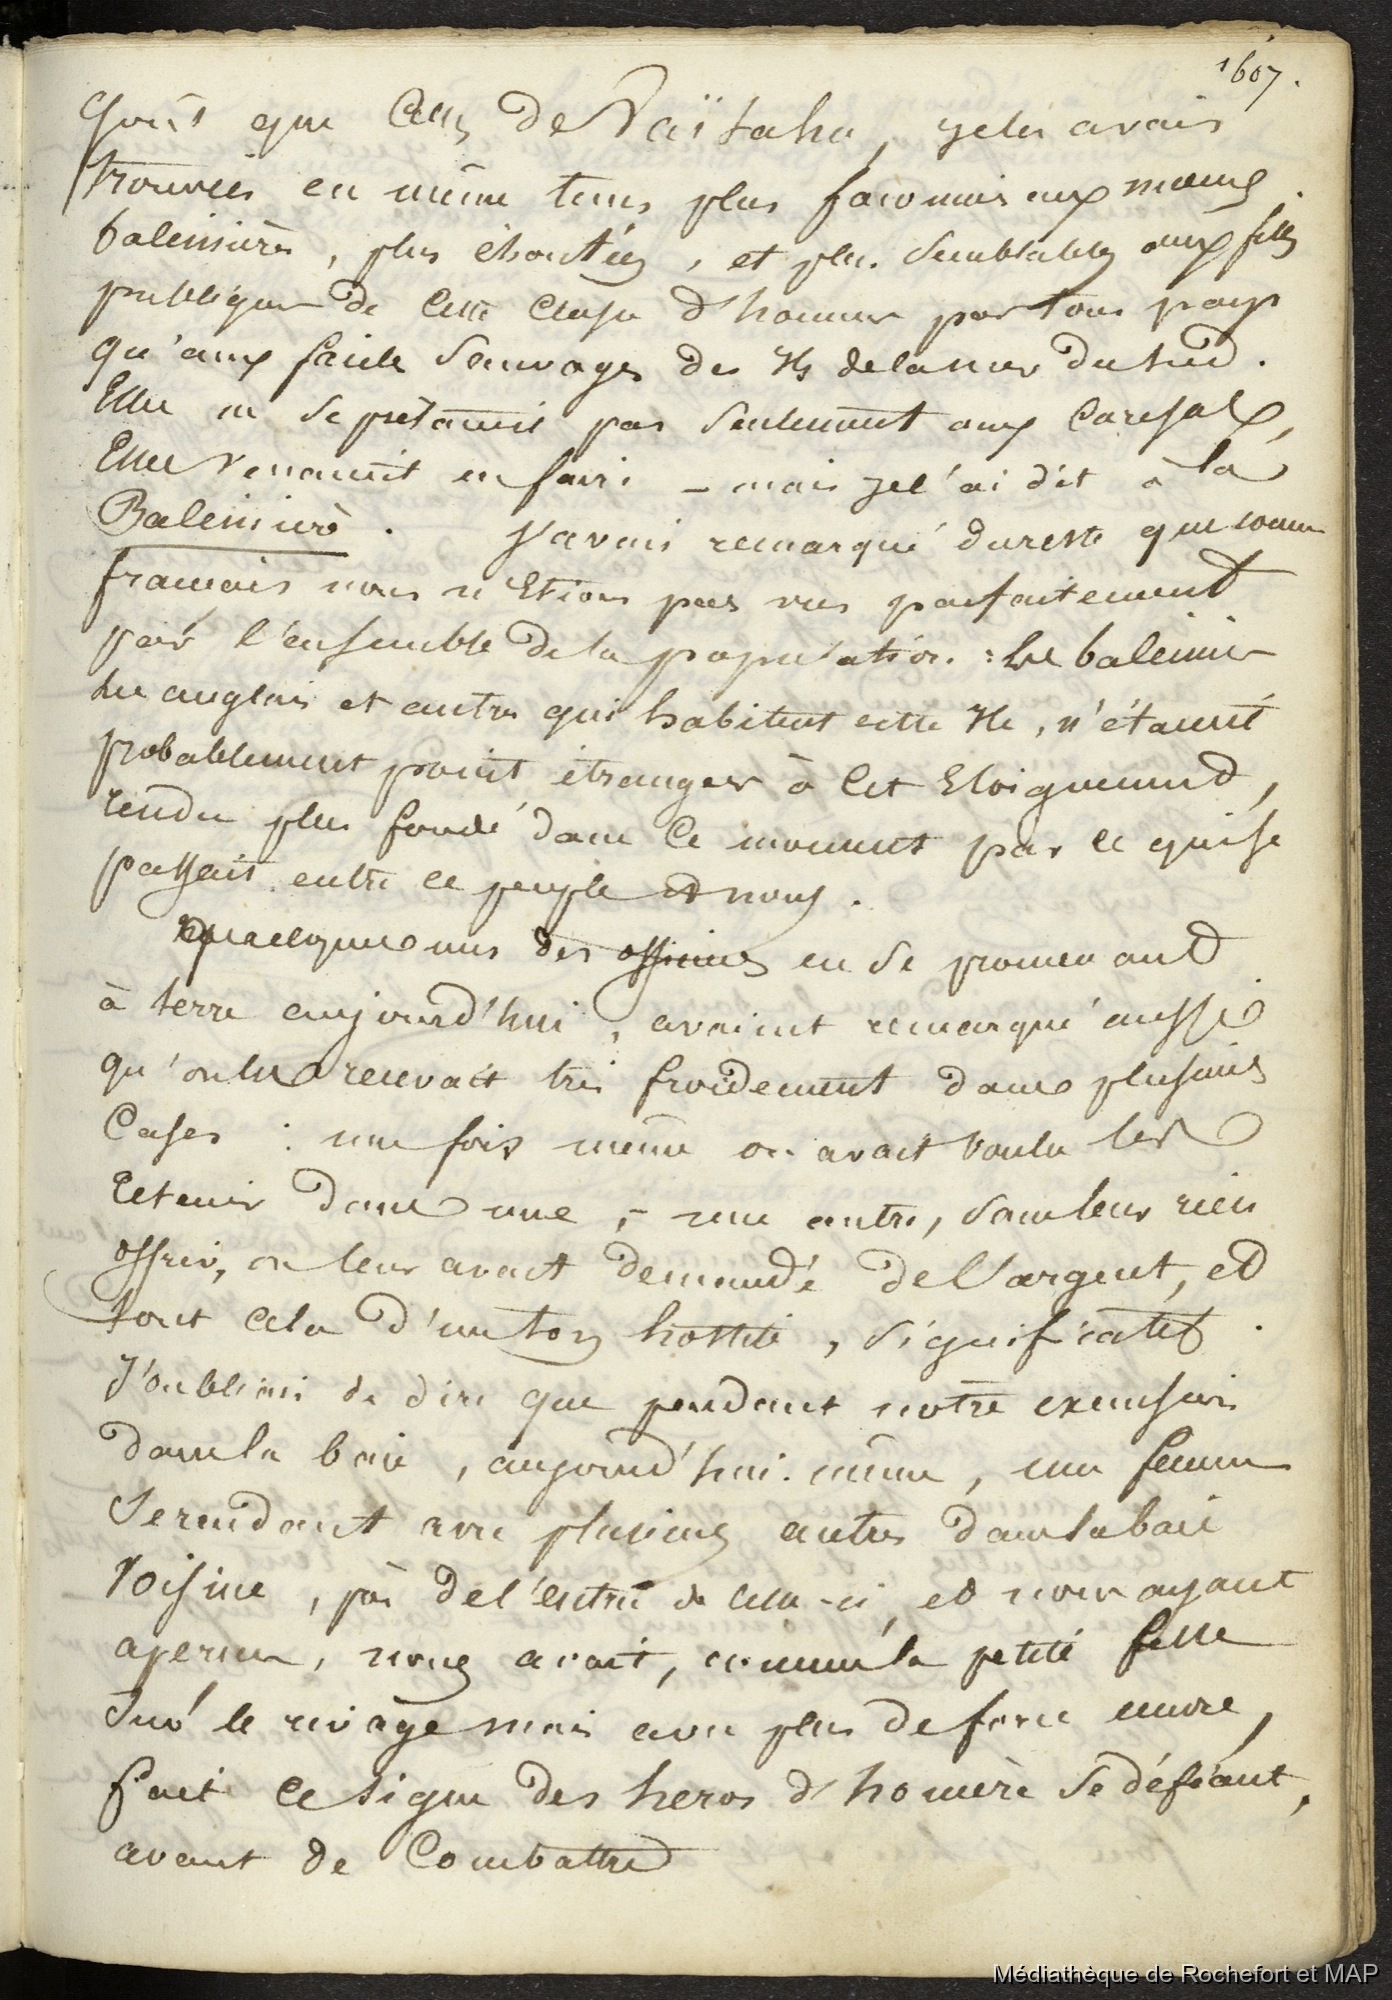 1607.
que celles de Vaïtahu, je les avais
trouvées en même tems plus façonnées aux mœurs
baleinières, plus éhontées, et plus semblables aux filles
publiques de cette classe d'hommes par tous pays
qu'aux faciles sauvages des Iles de la mer du Sud.
Elles ne se prêtaient pas seulement aux caresses,
Elles venaient en faire – mais je l'ai dit à la
Baleinière. J'avais remarqué dureste que comme
français nous n'Etions pas vus parfaitement
par l'ensemble de la population : les baleiniers
les anglais et autres qui habitent cette Ile, n'étaient
probablement point étrangers à cet Eloignement,
rendu plus fondé dans ce moment par ce qui se
passait entre ce peuple et nous.
quelques uns des officiers en se promenant
à terre aujourd'hui, avaient remarqué aussi
qu'on les recevait très froidement dans plusieurs
Cases : une fois même on avait voulu les
retenir dans une ; – une autre, sans leur rien
offrir, on leur avait demandé de l'argent, et
tout cela d'un ton hostile, significatif.
J'oubliais de dire que pendant notre excursion
dans la baie, aujourd'hui même, une femme
se rendant avec plusieurs autres dans la baie
voisine, près de l'entrée de celle-ci, et nous ayant
aperçus, nous avait, comme la petite fille
sur le rivage mais avec plus de force encore,
fait ce signe des heros d'homère se défiant,
avant de Combattre
Médiathèque de Rochefort et MAP